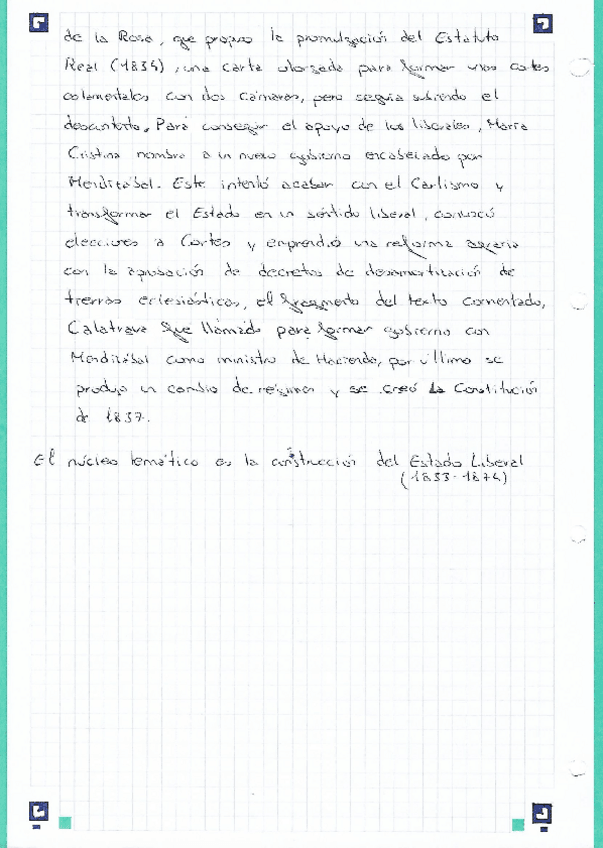 de la Rosa, que propuso la promulgación del Estatuto
Real (1834), una carta otorgada para formar unas cortes
estamentales con dos cámaras, pero seguía subiendo el
descontento. Para conseguir el apoyo de los liberales, María
Cristina nombró a un nuevo gobierno encabezado por
Mendizábal. Este intentó acabar con el Carlismo y
transformar el Estado en un sentido liberal, convocó
elecciones a Cortes y emprendió una reforma agraria
con la aprobación de decretos de desamortización de
tierras eclesiásticas, el fragmento del texto comentado,
Calatrava fue llamado para formar gobierno con
Mendizábal como ministro de Hacienda, por último se
produjo un cambio de régimen y se creó la Constitución
de 1837.
El núcleo temático es la construcción del Estado Liberal
(1833-1874)